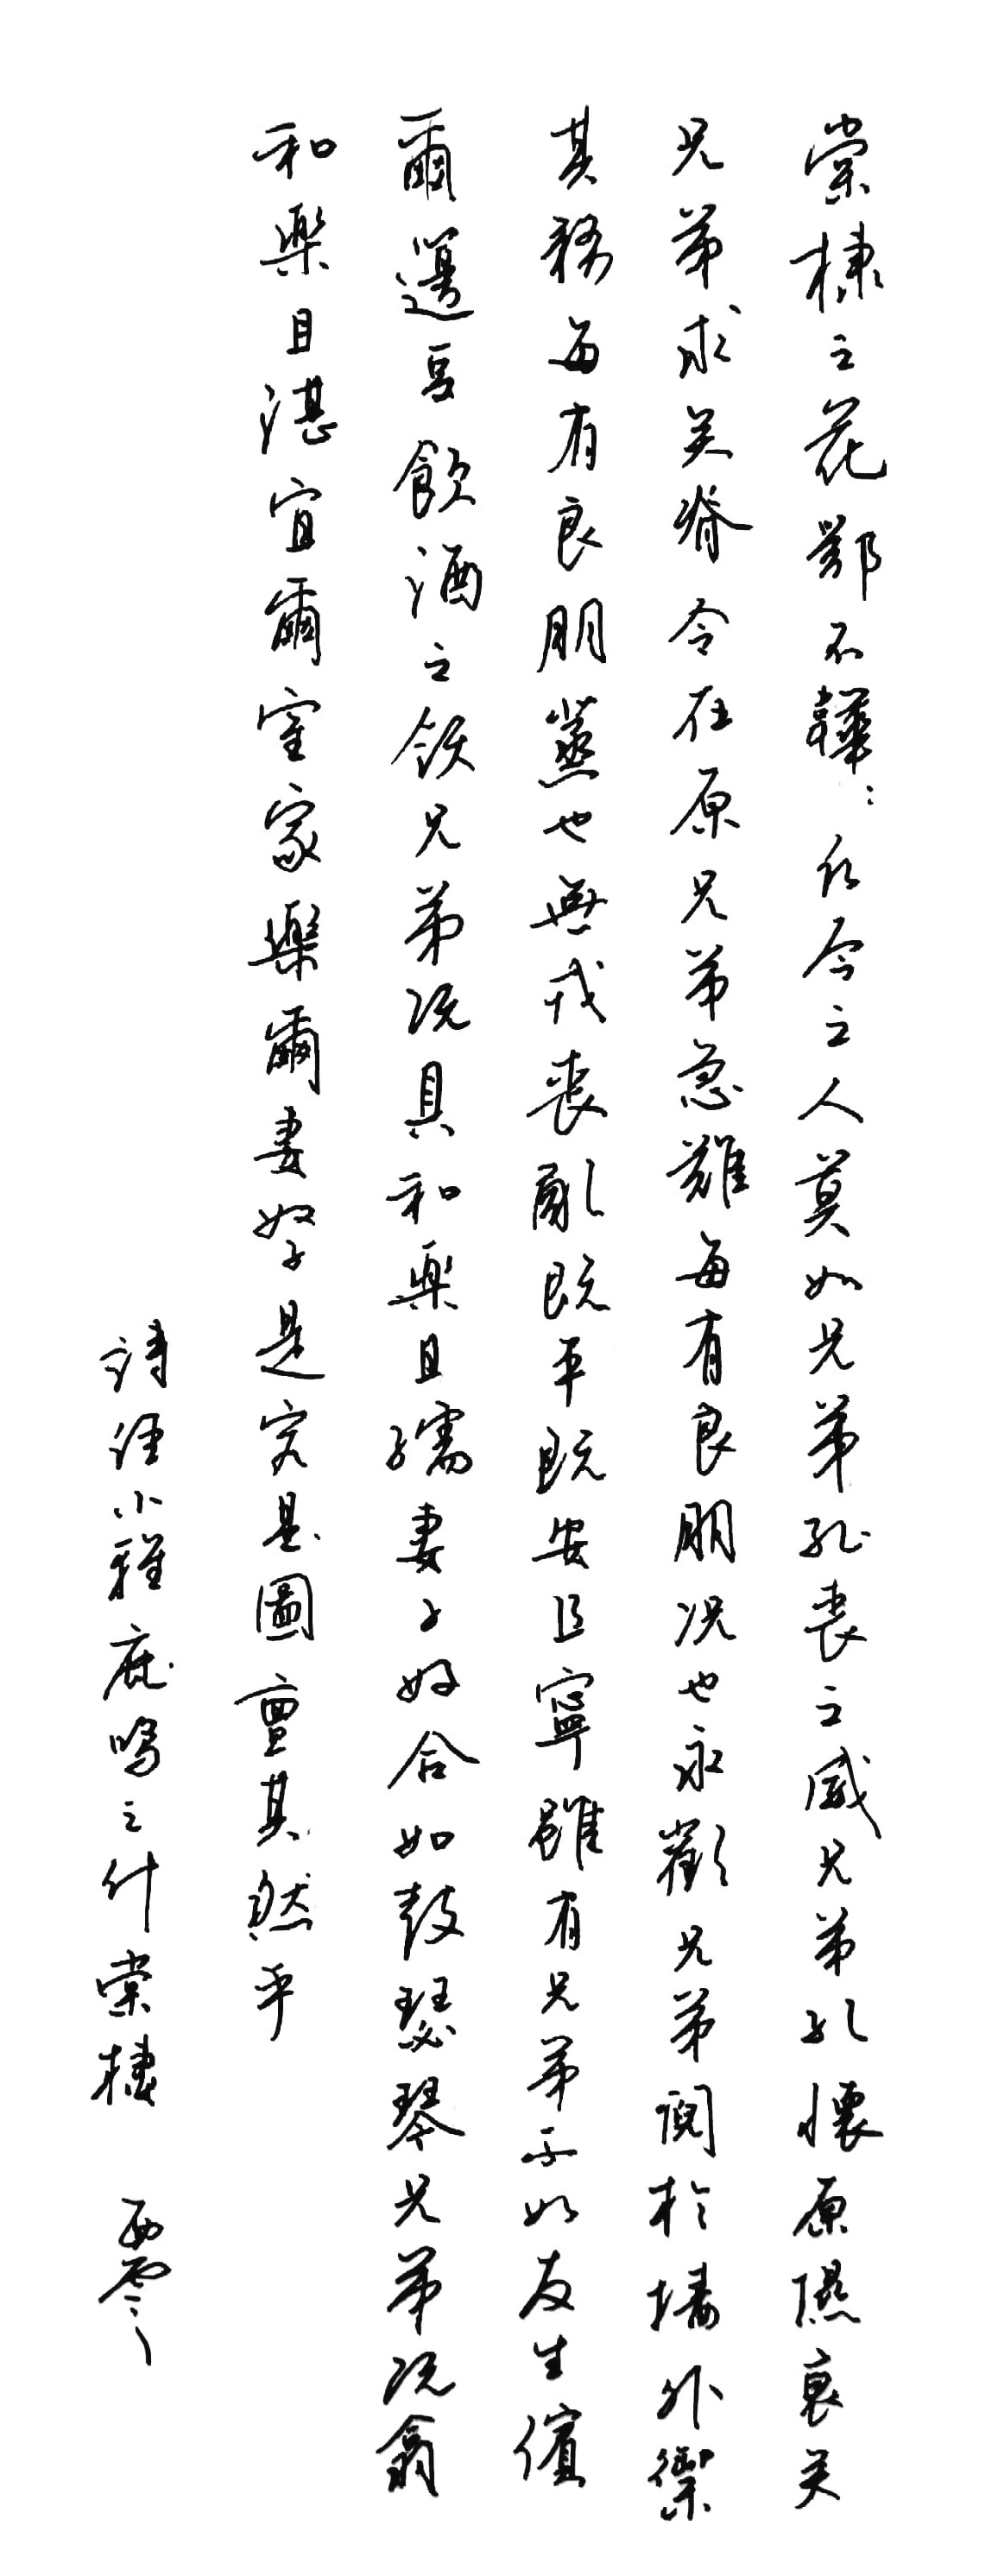 棠棣之花鄂不韡:凡今之人莫如兄弟死丧之威兄弟孔懷原隰裒矣
兄弟求矣脊令在原兄弟急難每有良朋况也永歎兄弟鬩於墻外禦
其務每有良朋蒸也無戎丧亂既平既安且寧雖有兄弟不如友生儐
爾籩豆飲酒之飫兄弟既具和樂且孺妻子好合如鼓瑟琴兄弟既翕
和樂且湛宜爾室家樂爾妻孥是究是圖亶其然乎
詩經小雅鹿鳴之什棠棣 西零